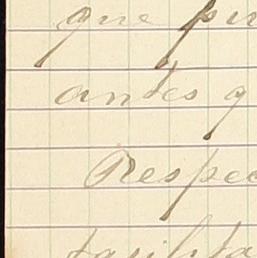 que pu
antes q
Respec
facilita